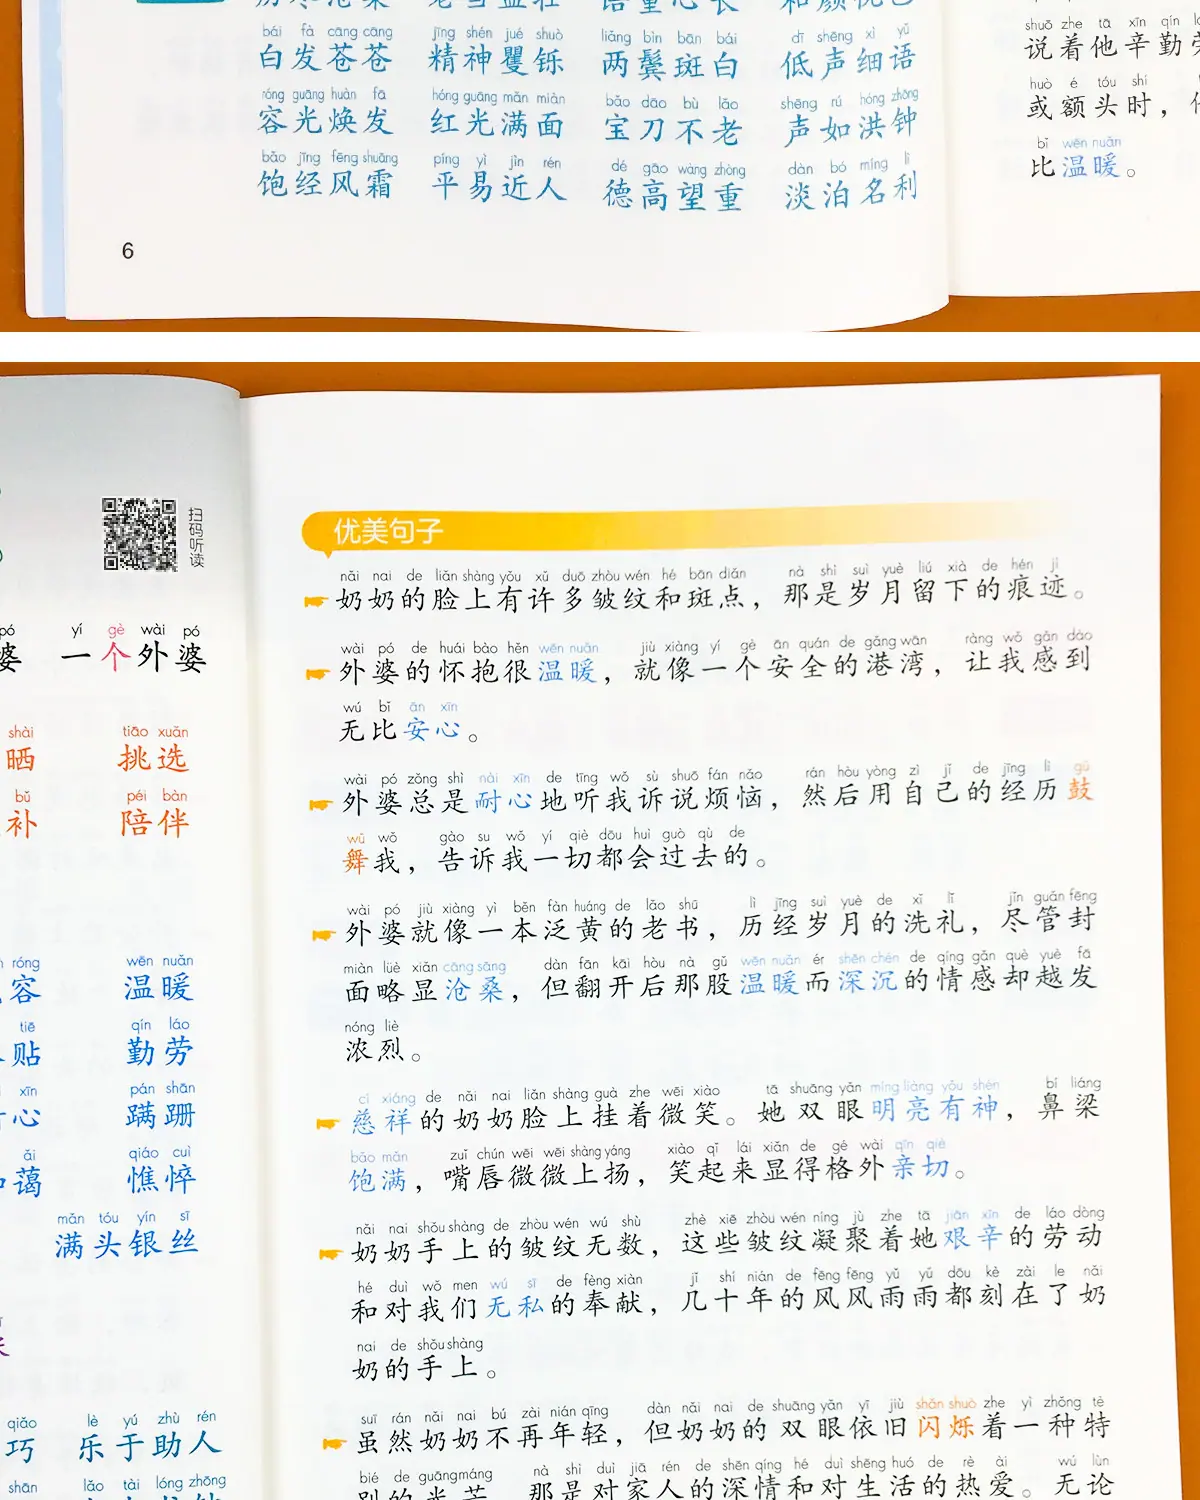 bái fà cāng cāng jīng shén jué shuò liǎng bìn bān bái dī shēng xì yǔ
白发苍苍 精神矍铄 两鬓斑白 低声细语
róng guāng huàn fā hóng guāng mǎn miàn bǎo dāo bù lǎo shēng rú hóng zhōng
容光焕发 红光满面 宝刀不老 声如洪钟
bǎo jīng fēng shuāng píng yì jìn rén dé gāo wàng zhòng dàn bó míng lì
饱经风霜 平易近人 德高望重 淡泊名利
6
shuō zhe tā xīn qín
说着他辛勤
huò é tóu shí
或额头时，
bǐ wēn nuǎn
比温暖。
扫码听读
pó yí gè wài pó
婆 一个外婆
shài tiāo xuǎn
晒 挑选
bǔ péi bàn
补 陪伴
róng wēn nuǎn
容 温暖
tiē qín láo
贴 勤劳
xīn pán shān
心 蹒跚
ǎi qiáo cuì
蔼 憔悴
mǎn tóu yín sī
满头银丝
qiǎo lè yú zhù rén
巧 乐于助人
shān lǎo tài lóng zhōng
优美句子
nǎi nai de liǎn shàng yǒu xǔ duō zhòu wén hé bān diǎn nà shì suì yuè liú xià de hén jì
奶奶的脸上有许多皱纹和斑点，那是岁月留下的痕迹。
wài pó de huái bào hěn wēn nuǎn jiù xiàng yí gè ān quán de gǎng wān ràng wǒ gǎn dào
外婆的怀抱很温暖，就像一个安全的港湾，让我感到
wú bǐ ān xīn
无比安心。
wài pó zǒng shì nài xīn de tīng wǒ sù shuō fán nǎo rán hòu yòng zì jǐ de jīng lì gǔ
外婆总是耐心地听我诉说烦恼，然后用自己的经历鼓
wǔ wǒ gào su wǒ yí qiè dōu huì guò qù de
舞我，告诉我一切都会过去的。
wài pó jiù xiàng yì běn fàn huáng de lǎo shū lì jīng suì yuè de xǐ lǐ jǐn guǎn fēng
外婆就像一本泛黄的老书，历经岁月的洗礼，尽管封
miàn lüè xiǎn cāng sāng dàn fān kāi hòu nà gǔ wēn nuǎn ér shēn chén de qíng gǎn què yuè fā
面略显沧桑，但翻开后那股温暖而深沉的情感却越发
nóng liè
浓烈。
cí xiáng de nǎi nai liǎn shàng guà zhe wēi xiào tā shuāng yǎn míng liàng yǒu shén bí liáng
慈祥的奶奶脸上挂着微笑。她双眼明亮有神，鼻梁
bǎo mǎn zuǐ chún wēi wēi shàng yáng xiào qǐ lái xiǎn de gé wài qīn qiè
饱满，嘴唇微微上扬，笑起来显得格外亲切。
nǎi nai shǒu shàng de zhòu wén wú shù zhè xiē zhòu wén níng jù zhe tā jiān xīn de láo dòng
奶奶手上的皱纹无数，这些皱纹凝聚着她艰辛的劳动
hé duì wǒ men wú sī de fèng xiàn jǐ shí nián de fēng fēng yǔ yǔ dōu kè zài le nǎi
和对我们无私的奉献，几十年的风风雨雨都刻在了奶
nai de shǒu shàng
奶的手上。
suī rán nǎi nai bú zài nián qīng dàn nǎi nai de shuāng yǎn yī jiù shǎn shuò zhe yì zhǒng tè
虽然奶奶不再年轻，但奶奶的双眼依旧闪烁着一种特
bié de guāng máng nà shì duì jiā rén de shēn qíng hé duì shēng huó de rè ài wú lùn
别的光芒，那是对家人的深情和对生活的热爱。无论